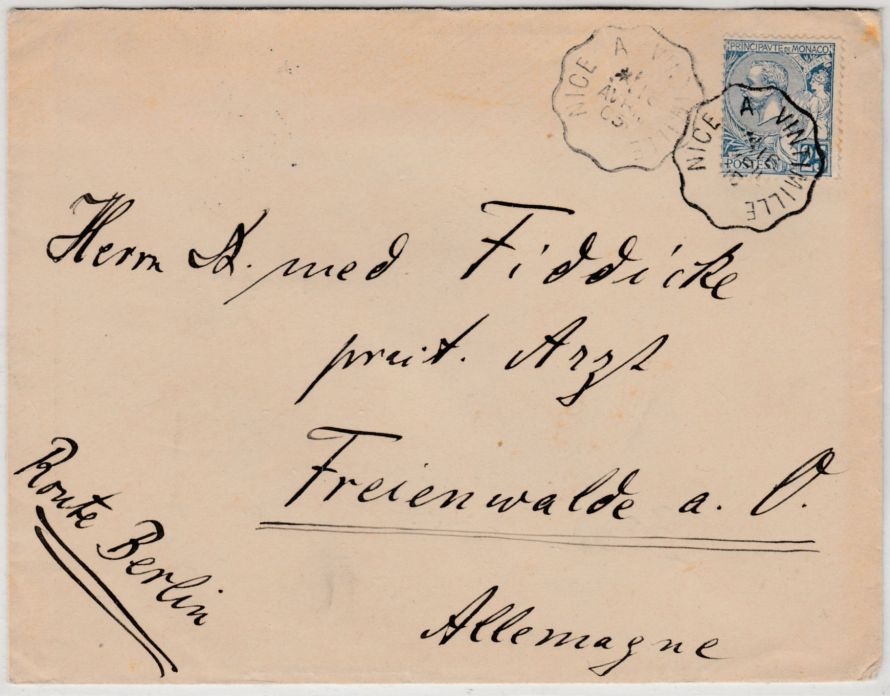 NICE A VINTIMILLE
AVRIL
PRINCIPAUTE DE MONACO
POSTES 25
NICE A VINTIMILLE
Herrn Dr. med Fiddicke
prakt. Arzt
Freienwalde a. O.
Route Berlin
Allemagne